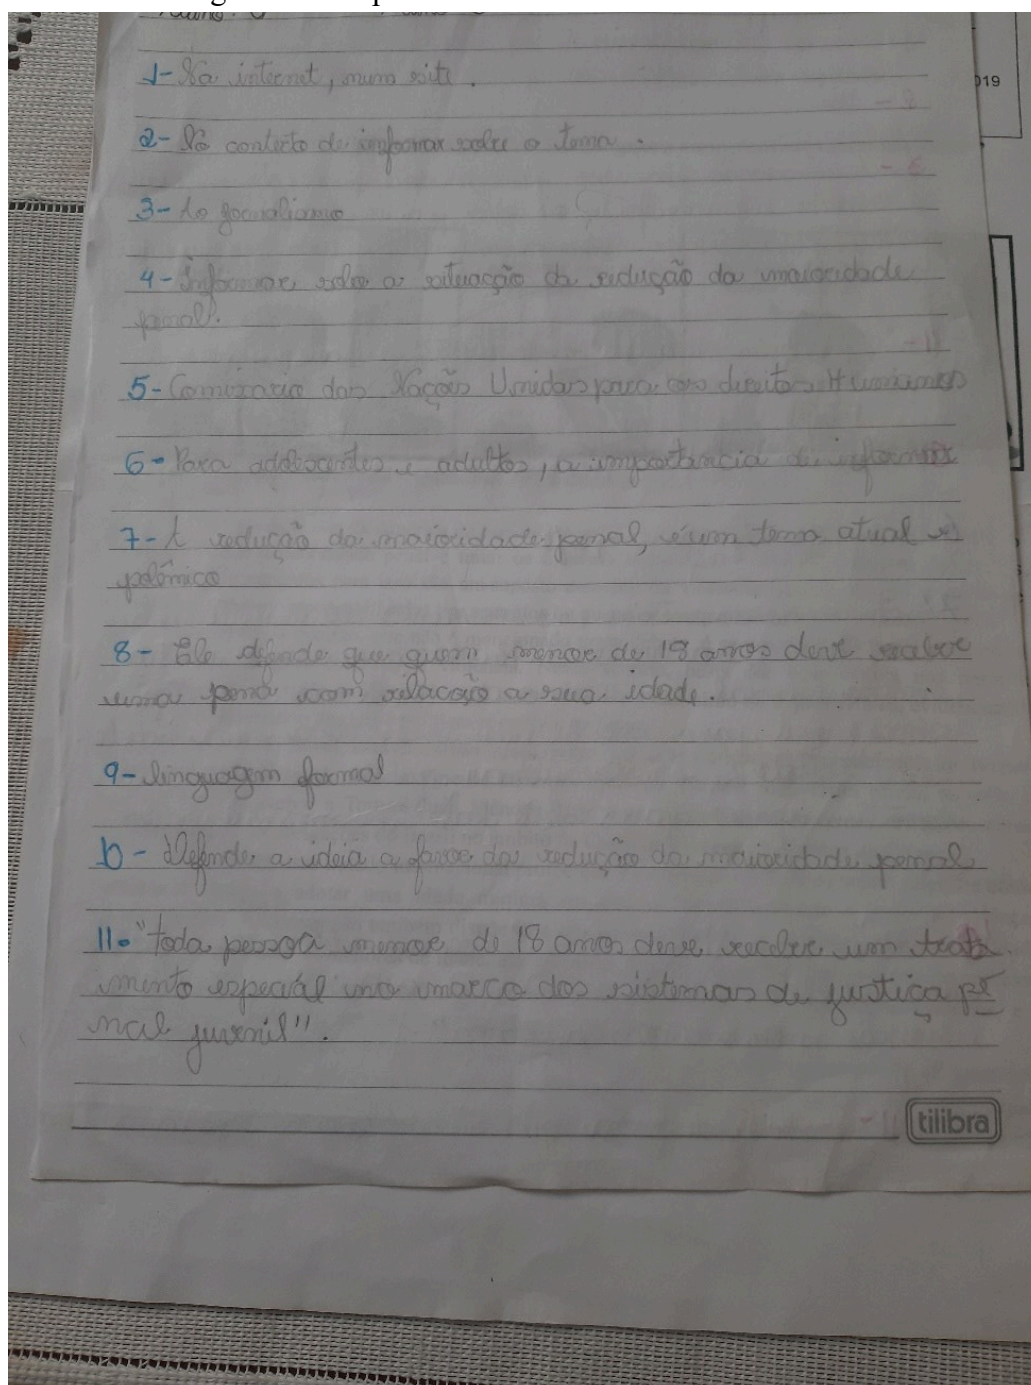 019
1- Na internet, num site.
2- No contexto de informar sobre o tema.
3- Ao jornalismo
4- Informar sobre a situação da redução da maioridade
penal.
5- Comissario das Nações Unidas para os direitos Humanos
6- Para adolescentes e adultos, a importância de informar
7- A redução da maioridade penal, é um tema atual e
polêmico
8- Ele defende que quem menor de 18 anos deve receber
uma pena com relação a sua idade.
9- linguagem formal
10- Defende a ideia a favor da redução da maioridade penal
11- "toda pessoa menor de 18 anos deve receber um trata
mento especial no marco dos sistemas de justiça pe
nal juvenil".
tilibra